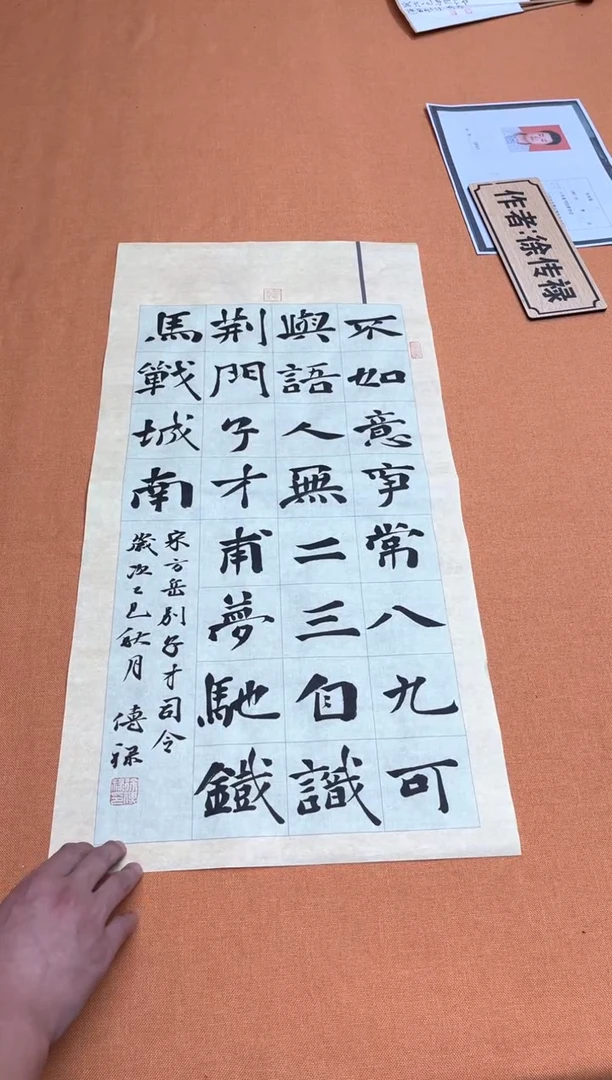 不如意事常八九可
與語人無二三自識
荆門子才甫夢馳鐵
馬戰城南
宋方岳别子才司令
歲次乙巳秋月 傳禄
作者:徐传禄